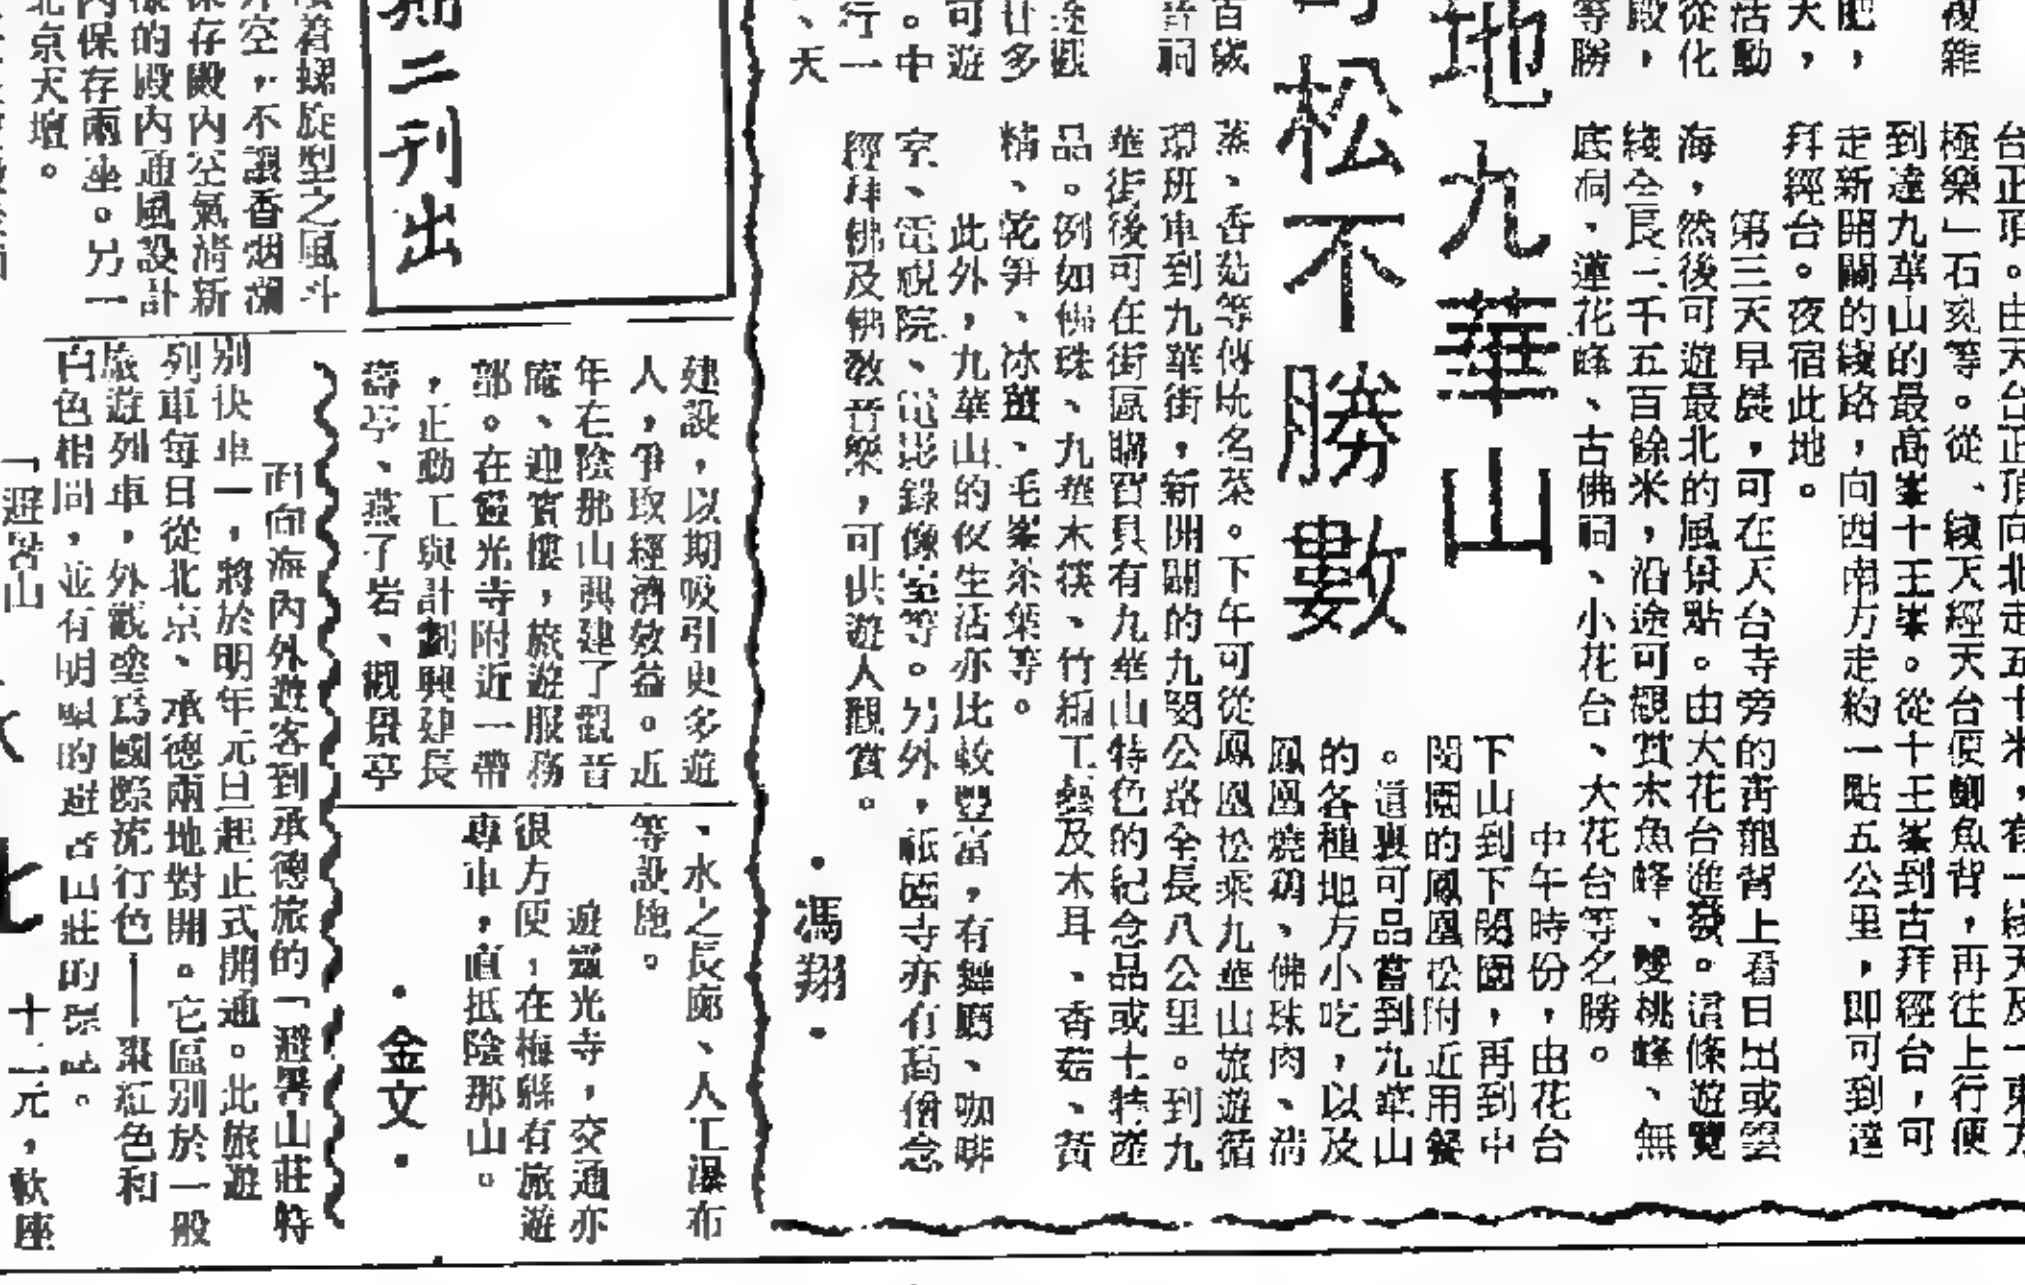 複雜
肥，
天，
活動
從化
殿，
等勝
地九華山
松不勝數
百歲
音祠
觀
廿多
可遊
。中
行一
、天
台正頂。由天台正頂向北走五十米，有一綫天及「東方
極樂」石刻等。從一綫天經天台便鯽魚背，再往上行便
到達九華山的最高峯十王峯。從十王峯到古拜經台，可
走新開闢的綫路，向西南方走約一點五公里，即可到達
拜經台。夜宿此地。
第三天早晨，可在天台寺旁的青龍背上看日出或雲
海，然後可遊最北的風景點。由大花台進發。這條遊覽
綫全長三千五百餘米，沿途可觀賞木魚峰、雙桃峰、無
底洞、蓮花峰、古佛祠、小花台、大花台等名勝。
中午時份，由花台
下山到下閔園，再到中
閔園的鳳凰松附近用餐
。這裏可品嘗到九華山
的各種地方小吃，以及
鳳凰燒鷄、佛珠肉、清
蒸、香菇等傳統名菜。下午可從鳳凰松乘九華山旅遊循
環班車到九華街，新開闢的九閔公路全長八公里。到九
華街後可在街區購買具有九華山特色的紀念品或土特產
品。例如佛珠、九華木筷、竹編工藝及木耳、香菇、黃
精、乾笋、冰薑、毛峯茶葉等。
此外，九華山的夜生活亦比較豐富，有舞廳、咖啡
室、電視院、電影錄像室等。另外，祇園寺亦有高僧念
經拜佛及佛教音樂，可供遊人觀賞。
·馮翔·
期二刊出
建設，以期吸引更多遊
人，爭取經濟效益。近
年在陰那山興建了觀音
庵、迎賓樓，旅遊服務
部。在靈光寺附近一帶
，正動工與計劃興建長
壽亭、燕子岩、觀景亭
、水之長廊、人工瀑布
等設施。
遊靈光寺，交通亦
很方便，在梅縣有旅遊
專車，直抵陰那山。
·金文·
着螺旋型之風斗
空，不讓香烟瀰
保存殿內空氣清新
樣的殿內通風設計
內保存兩座。另一
北京天壇。
面向海內外遊客到承德旅的「避暑山莊特
別快車」，將於明年元旦起正式開通。此旅遊
列車每日從北京、承德兩地對開。它區別於一般
旅遊列車，外觀塗爲國際流行色——棗紅色和
白色相間，並有明顯的避暑山莊的標誌。
「避暑山
北
十二元，軟座